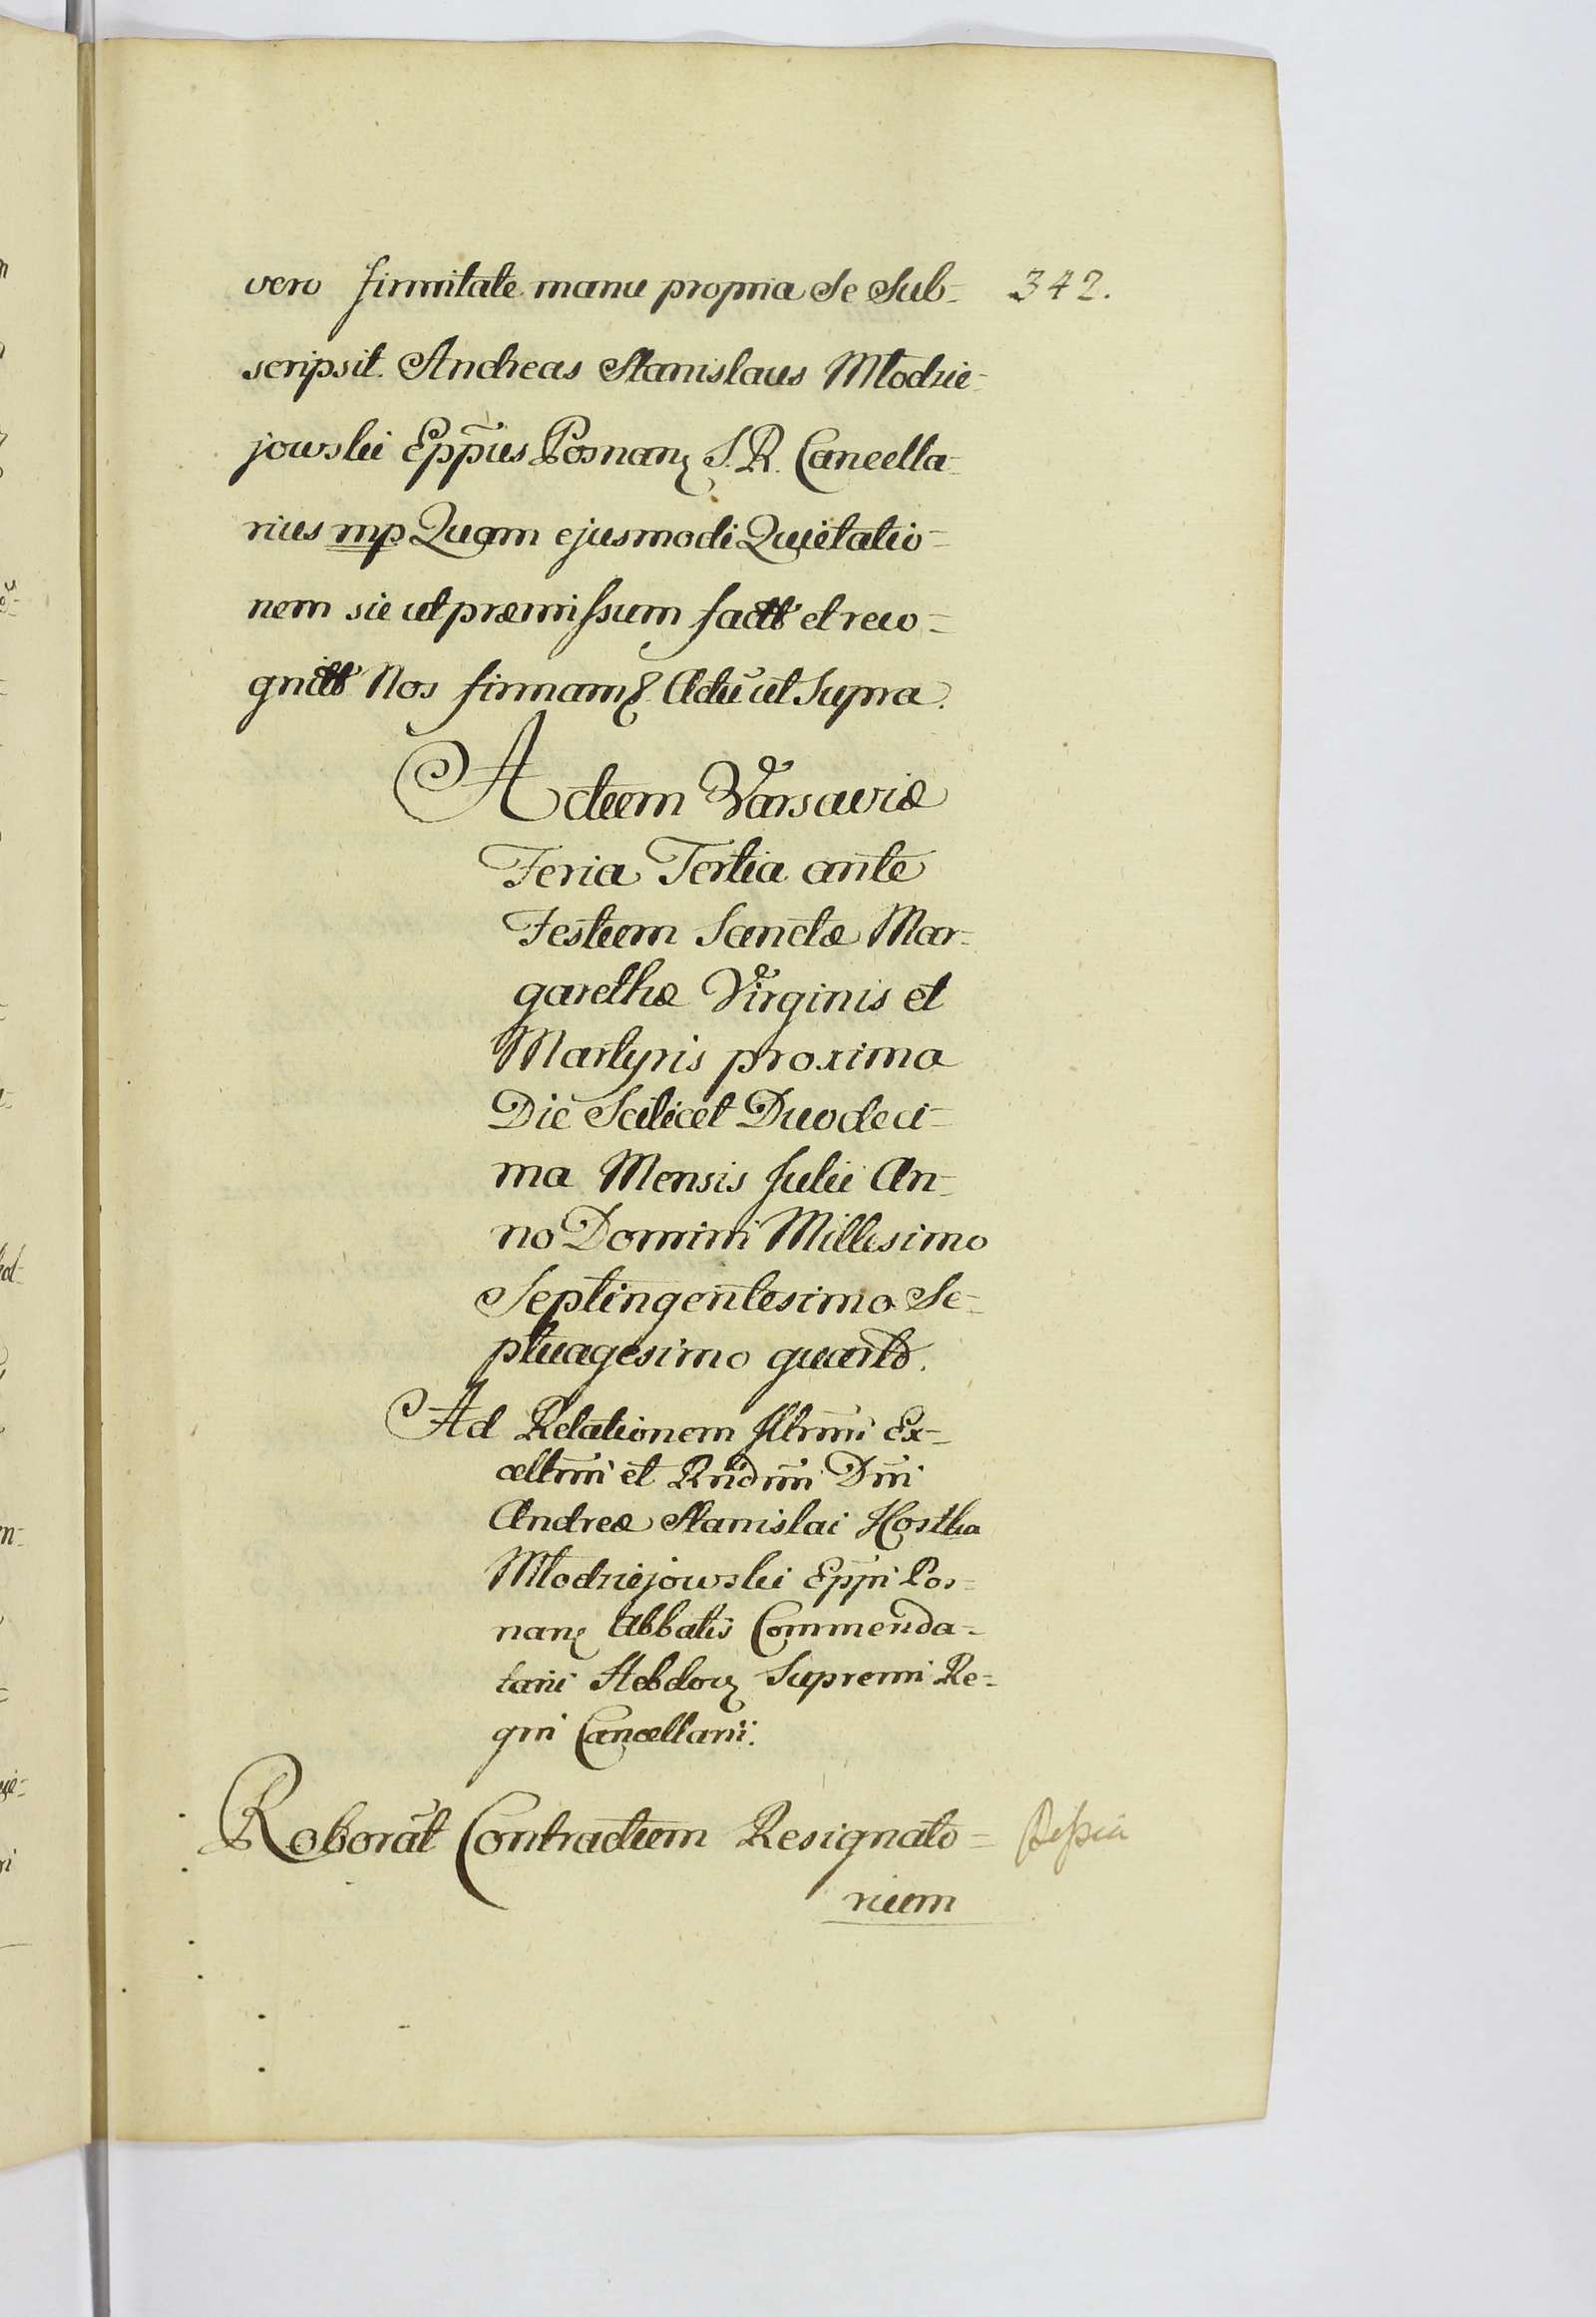 vero firmitate manu propria Se Sub- 342.
scripsit. Andreas Stanislaus Młodzie-
jowski Eppũs Posnanꝫ S. R. Cancella-
rius mp Quam ejusmodi Quietatio-
nem sic ut præmissum factã et reco-
gnitã Nos firmamꝰ. Actũ ut Supra.
Actum Varsaviæ
Feria Tertia ante
Festum Sanctæ Mar-
garethæ Virginis et
Martyris proxima
Die Scilicet Duodeci-
ma Mensis Julii An-
no Domini Millesimo
Septingentesimo Se-
ptuagesimo quarto.
Ad Relationem Illrmi Ex-
celtmi et Rndmi Dni
Andreæ Stanislai Kostka
Młodziejowski Eppi Pos-
nanꝫ Abbatis Commenda-
tarii Hebdovꝫ Supremi Re-
gni Cancellarii.
Roborat̃ Contractum Resignato-
rium